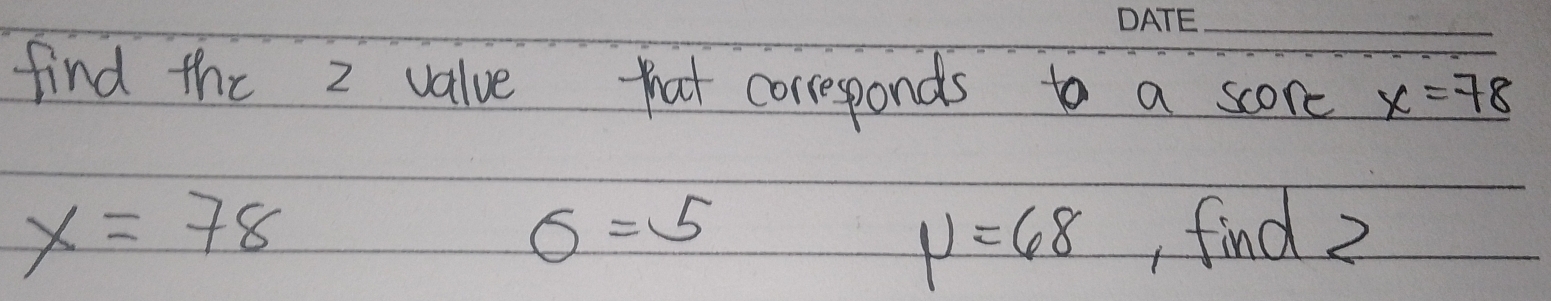 DATE
find the z value that corresponds to a score x=78
x = 78 σ = 5 μ = 68 , find z